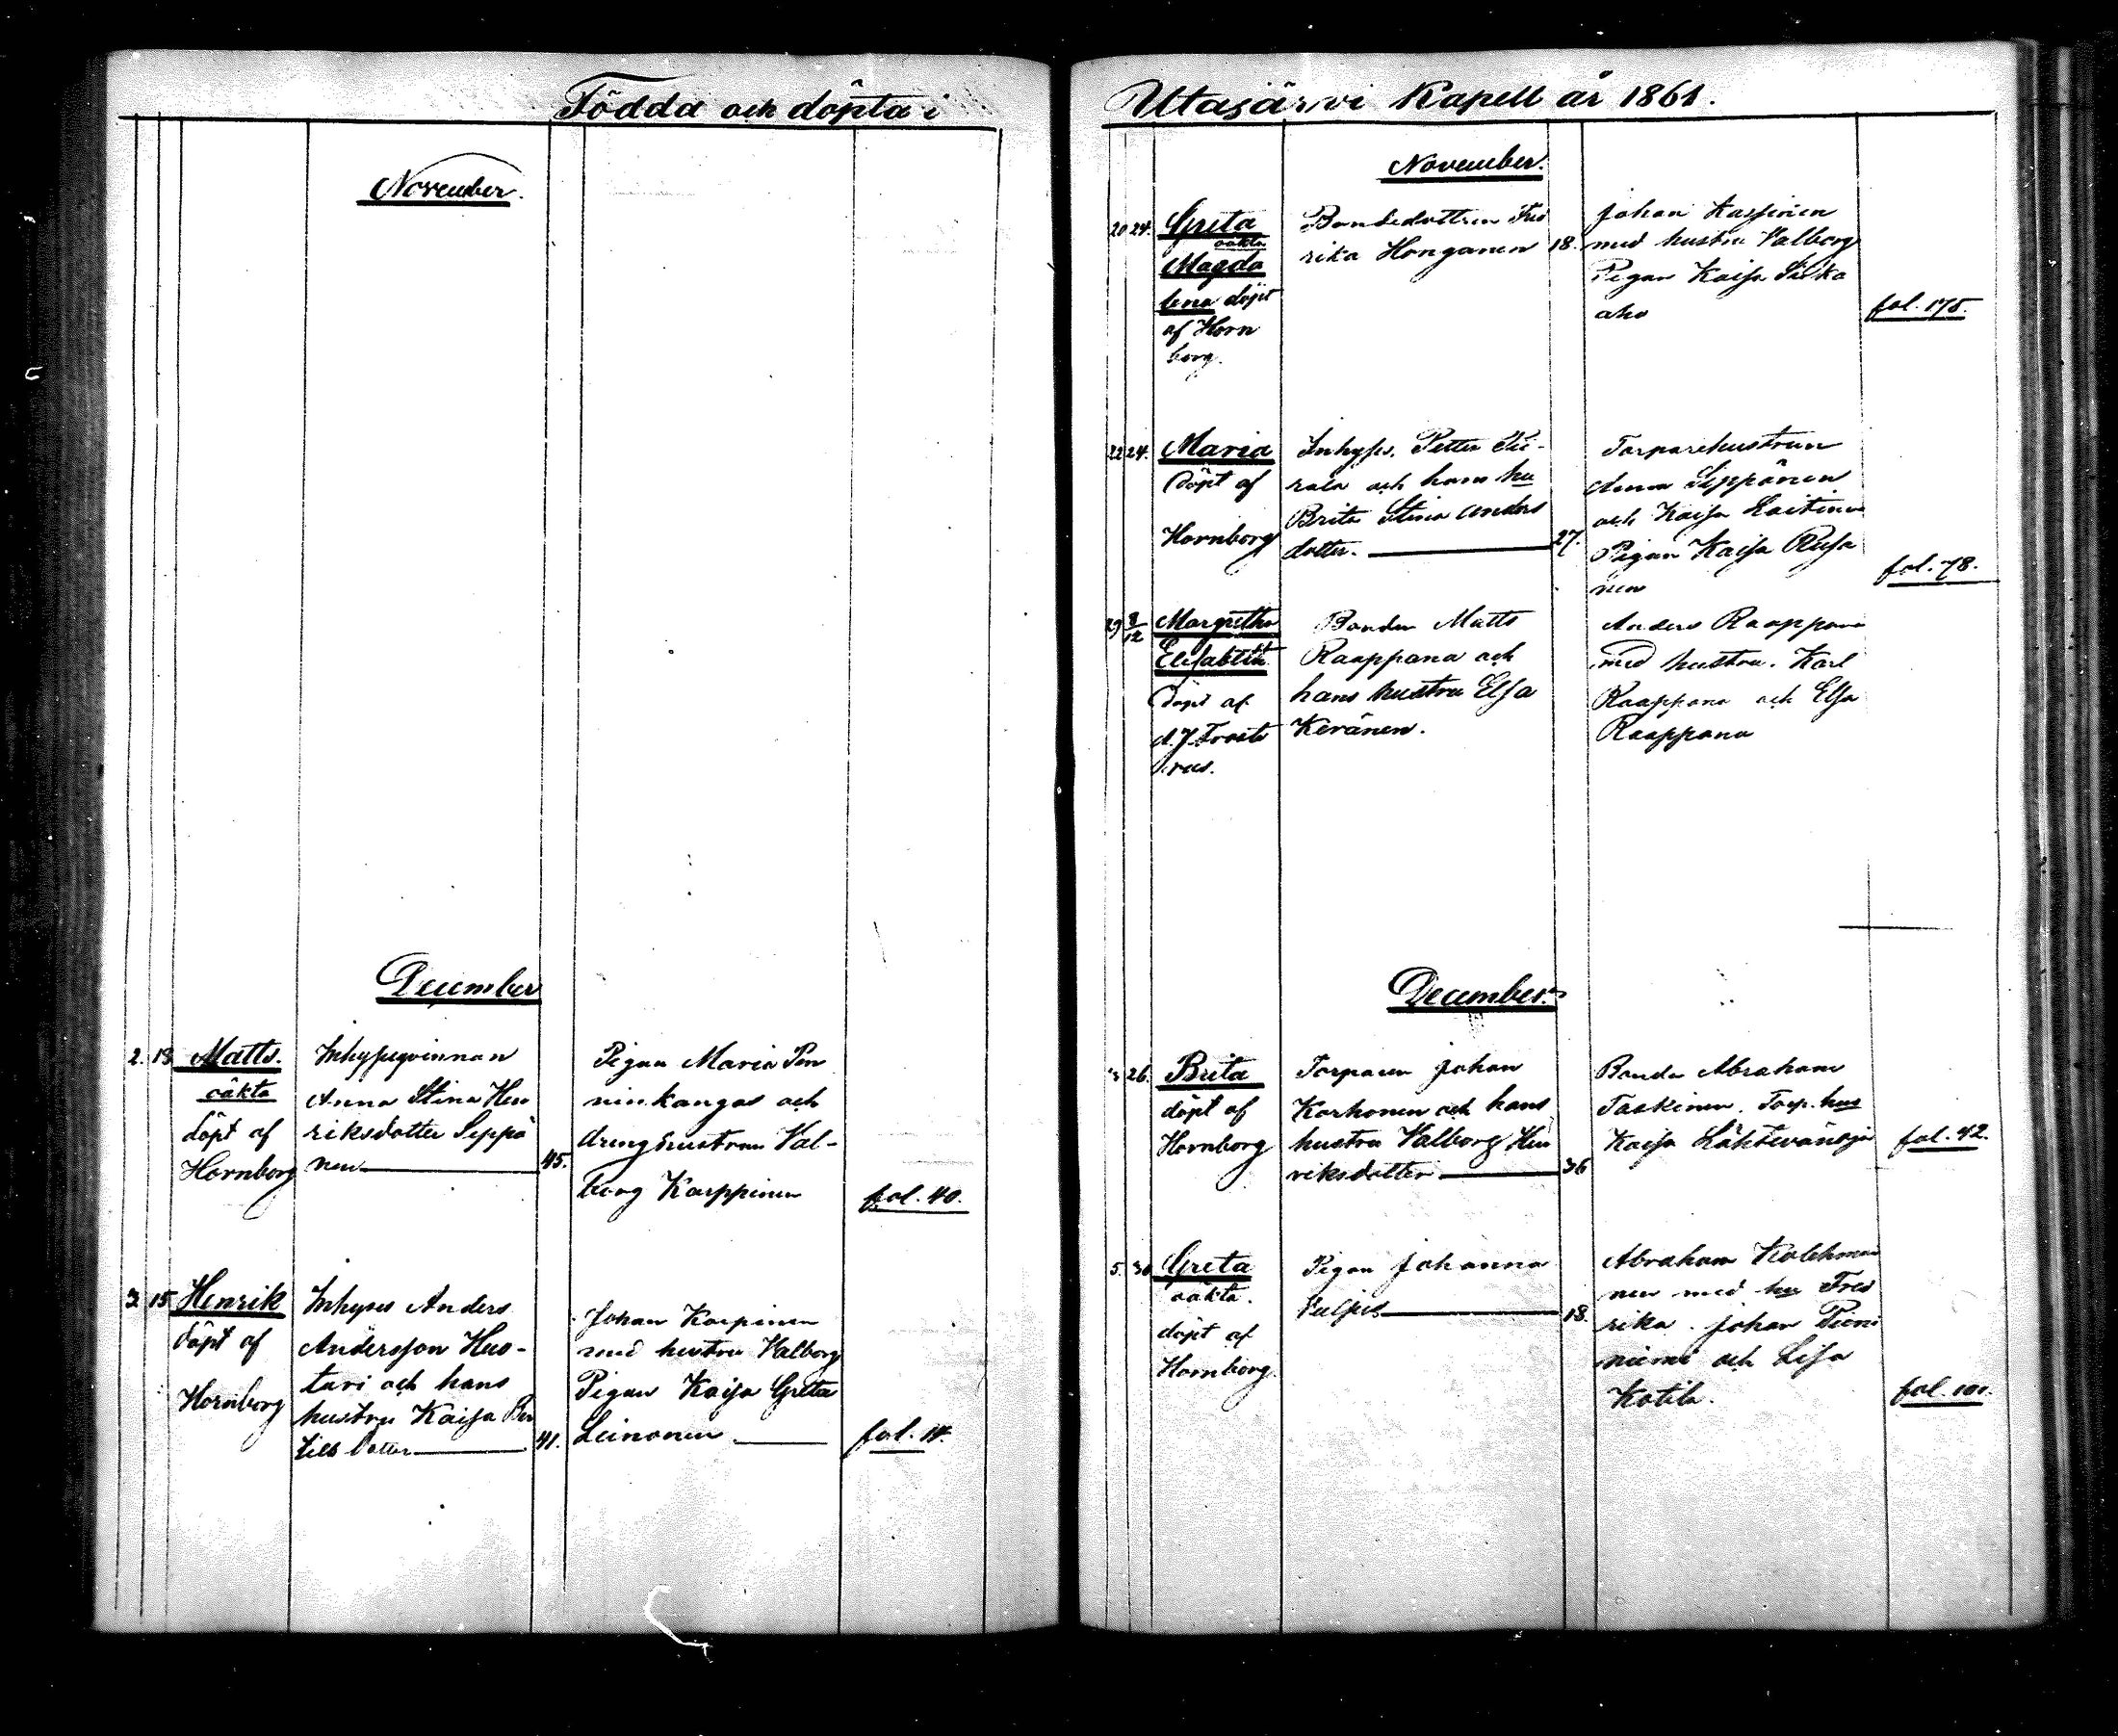 Födda och döpta i
November.
December
2. 13 Matts.
oäkta
döpt af
Hornborg
Inhysesqvinnan
Anna Stina Hen
riksdotter Seppä
nen 45.
Pigan Maria Pen
ninkangas och
drenghustrun Val-
borg Karppinen
fol. 40.
3. 15 Henrik
döpt af
Hornborg
Inhyses Anders
Andersson Hus-
tari och hans
hustru Kaisa Ber
tils dotter 41.
Johan Karpinen
med hustru Valborg
Pigan Kaisa Greta
Leinonen
fol. 14.
Utasärvi Kapell år 1861.
November.
20 24. Greta
oäkta
Magda
lena döpt
af Horn
borg.
Bondedottren Fred
rika Honganen 18.
Johan Karpinen
med hustru Valborg
Pigan Kaisa
aho
fol. 175.
22 24. Maria
döpt af
Hornborg
Inhyses. Petter
och hans hu
Brita Stina Anders
dotter. 27.
Torparehustrun
Anna Seppänen
och Kaisa Laitinen
Pigan Kaisa Rusa
nen
fol. 78.
29 8/12 Margretha
Elisabeth
döpt af
Bonden Matts
Raappana och
hans hustru Elsa
Keränen.
Anders Raappana
med hustru. Karl
Raappana och Elsa
Raappana
December.
3 26. Brita
döpt af
Hornborg
Torparen Johan
Korhonen och hans
hustru Valborg Hen
riksdotter 36
Bonde Abraham
Taskinen. Torp. hus
Kaisa
fol. 42.
5. 30 Greta
oäkta.
döpt af
Hornborg.
Pigan Johanna
18.
Abraham Kolehmai
nen med hu Fred
rika. Johan Pieni
niemi och Lisa
Kotila.
fol. 101.